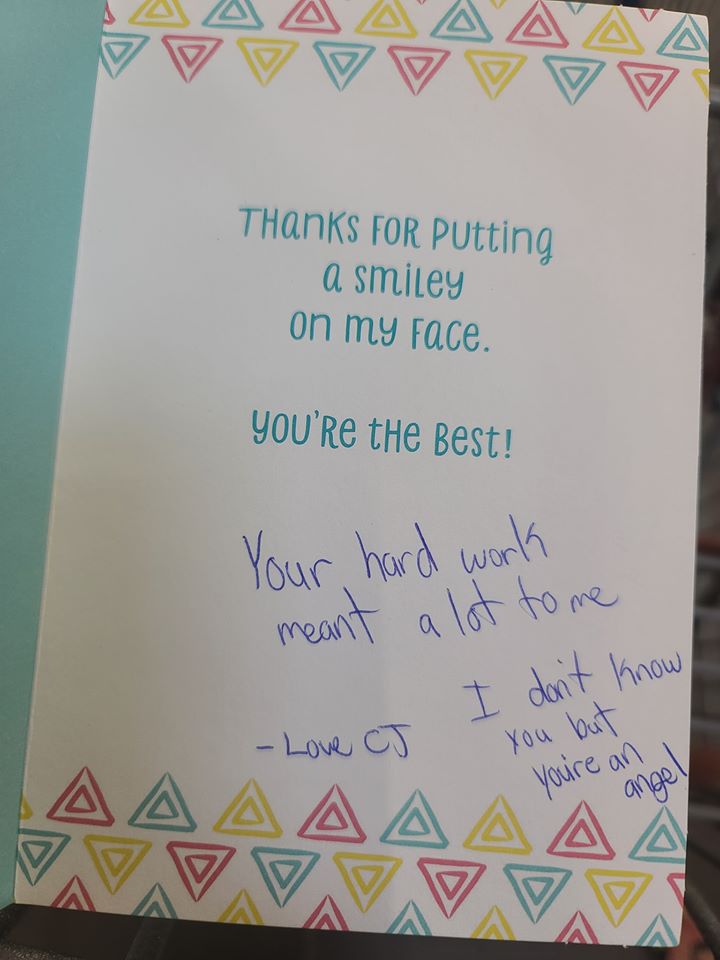 THanKS FOR PUtting
a SmiLey
on my Face.
YOU'RE tHE BEST!
Your hard work
meant a lot to me
- Love CJ
I don't know
you but
you're an
angel